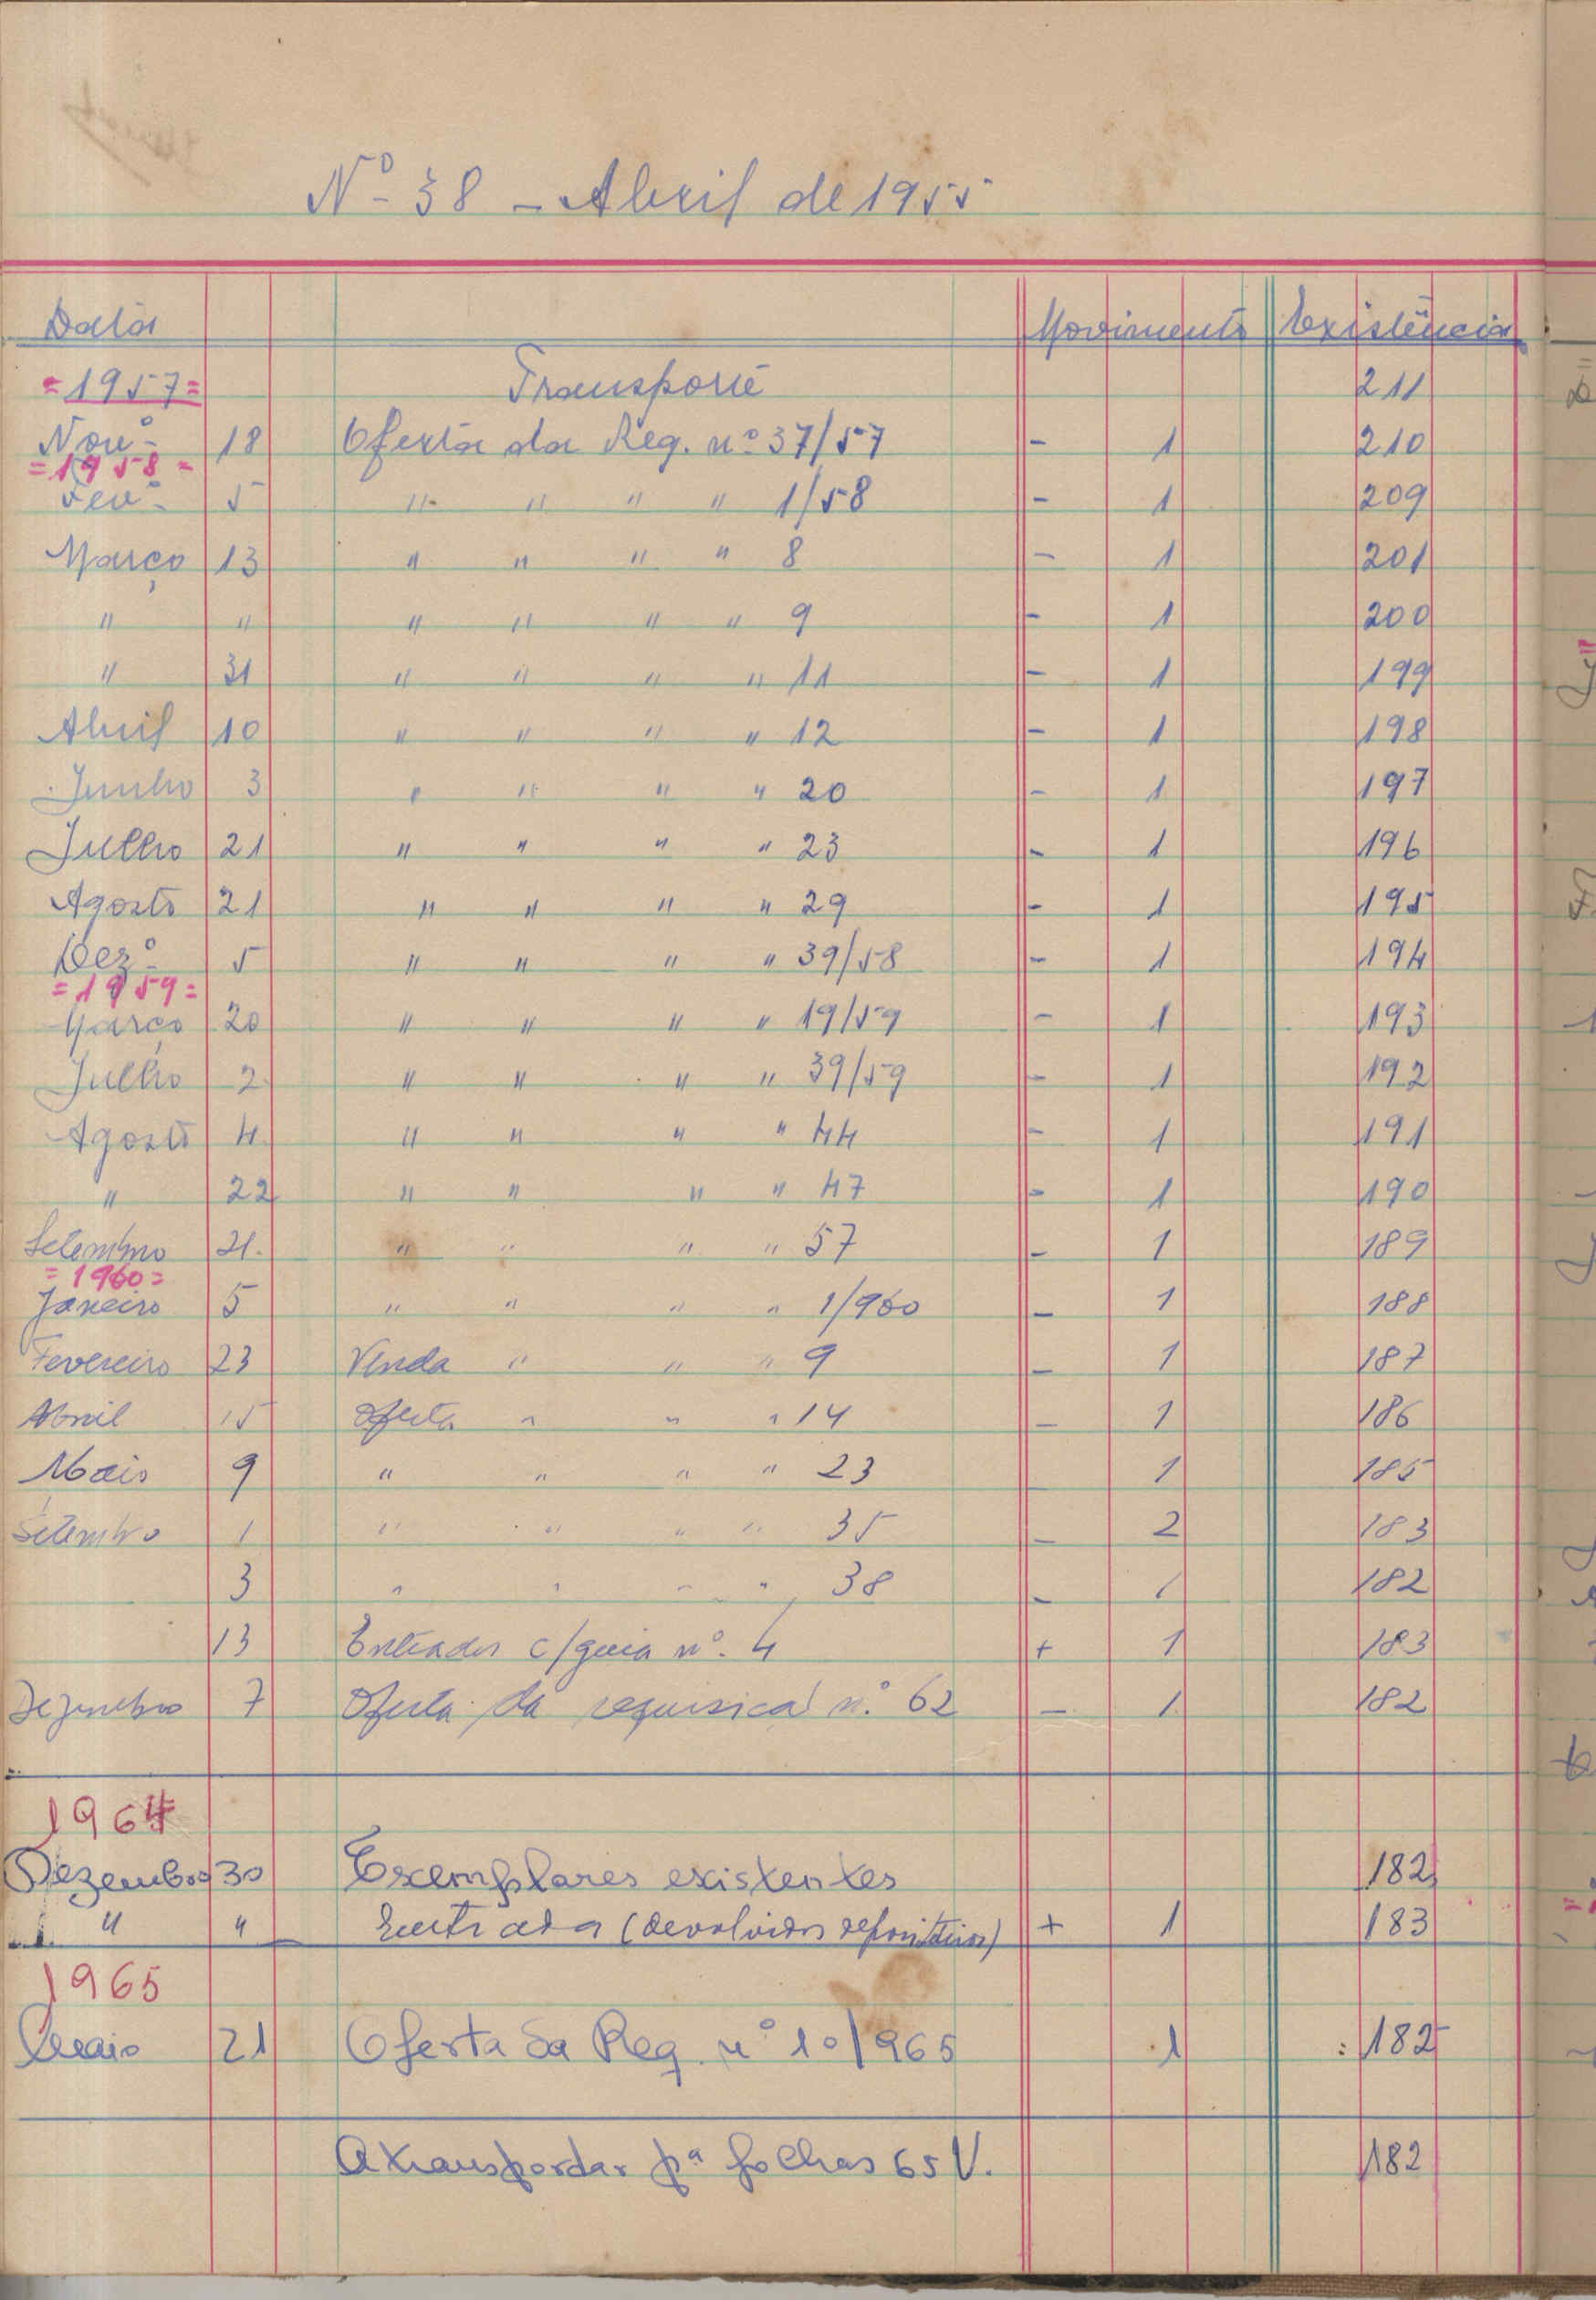 Nº 38 - Abril de 1955
Data Movimento Existência
=1957= Transporte 211
Novº 18 Oferta da Req. nº 37/57 - 1 210
=1958=
Fevº 5 " " " " 1/58 - 1 209
Março 13 " " " " 8 - 1 201
" " " " " " 9 - 1 200
" 31 " " " " 11 - 1 199
Abril 10 " " " " 12 - 1 198
Junho 3 " " " " 20 - 1 197
Julho 21 " " " " 23 - 1 196
Agosto 21 " " " " 29 - 1 195
Dezº 5 " " " " 39/58 - 1 194
=1959=
Março 20 " " " " 19/59 - 1 193
Julho 2 " " " " 39/59 - 1 192
Agosto 4 " " " " 44 - 1 191
" 22 " " " " 47 - 1 190
Setembro 21. " " " " 57 - 1 189
=1960=
Janeiro 5 " " " " 1/960 - 1 188
Fevereiro 23 Venda " " " 9 - 1 187
Abril 15 Oferta " " " 14 - 1 186
Maio 9 " " " " 23 1 185
Setembro 1 " " " " 35 - 2 183
3 " " " " 38 - 1 182
13 Entrada c/guia nº. 4 + 1 183
Dezembro 7 Oferta da requisicá nº. 62 - 1 182
1964
Dezembro 30 Exemplares existentes 182
" " Entrada (devolvidos + 1 183
1965
Maio 21 Oferta da Req. nº 10/965 1 182
A transportar pª folhas 65 V. 182